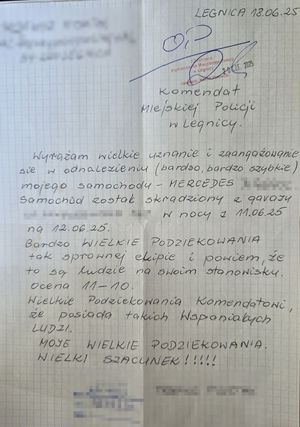 LEGNICA 18.06.25
Komendat
Miejskiej Policji
w Legnicy.
Wyrażam wielkie uznanie i zaangażowanie
się w odnalezieniu (bardzo, bardzo szybkie)
mojego samochodu - MERCEDES
Samochód został skradziony z garażu
w nocy z 11.06.25
na 12.06.25.
Bardzo WIELKIE PODZIĘKOWANIA
tak sprawnej ekipie i powiem, że
to są ludzie na swoim stanowisku.
Ocena 11-10.
Wielkie Podziękowania Komendatowi,
że posiada takich Wspaniałych
LUDZI.
MOJE WIELKIE PODZIĘKOWANIA.
WIELKI SZACUNEK!!!!!